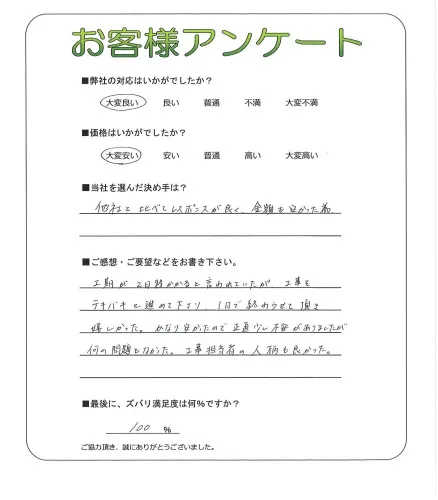 お客様アンケート
■弊社の対応はいかがでしたか？
大変良い 良い 普通 不満 大変不満
■価格はいかがでしたか？
大変安い 安い 普通 高い 大変高い
■当社を選んだ決め手は？
他社と比べてレスポンスが良く、金額も安かった為
■ご感想・ご要望などをお書き下さい。
工期が2日程かかると言われていたが、工事を
テキパキと進めて下さり、1日で終わらせて頂き
嬉しかった。かなり安かったので正直少し不安がありましたが
何の問題もなかった。工事担当者の人柄も良かった。
■最後に、ズバリ満足度は何%ですか？
100 %
ご協力頂き、誠にありがとうございました。